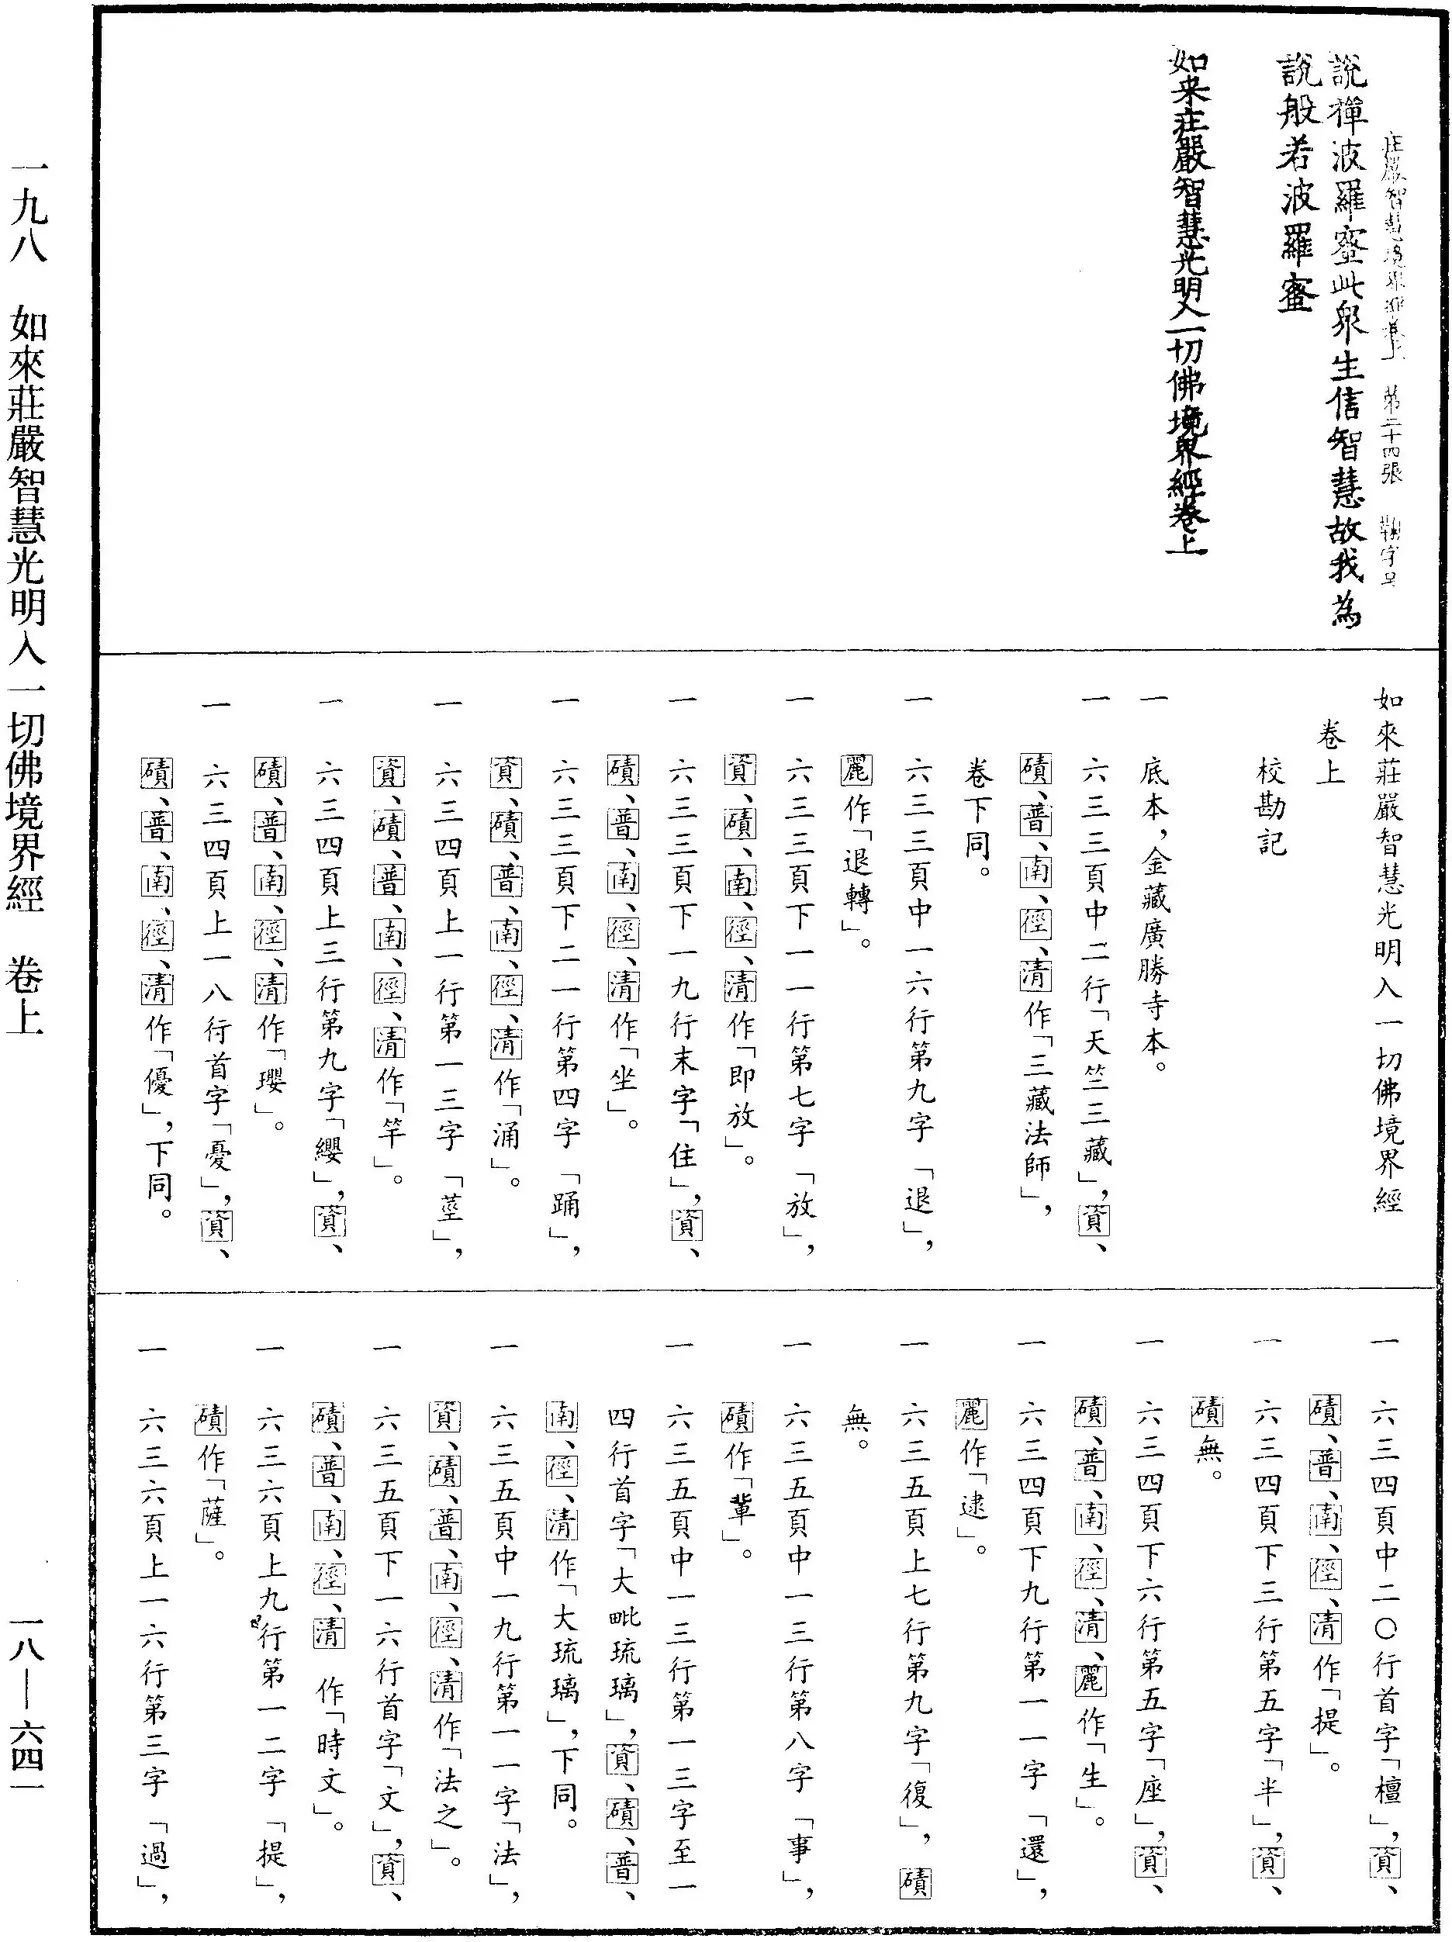 庄嚴智慧境界經卷上　第二十四張　鞠字号
說禪波羅蜜此衆生信智慧故我為
說般若波羅蜜
如来莊嚴智慧光明入一切佛境界經卷上
如來莊嚴智慧光明入一切佛境界經
卷上
校勘記
一　底本，金藏廣勝寺本。
一　六三三頁中二行「天竺三藏」，資、
磧、普、南、徑、清作「三藏法師」，
卷下同。
一　六三三頁中一六行第九字「退」，
麗作「退轉」。
一　六三三頁下一一行第七字「放」，
資、磧、南、徑、清作「即放」。
一　六三三頁下一九行末字「住」，資、
磧、普、南、徑、清作「坐」。
一　六三三頁下二一行第四字「踊」，
資、磧、普、南、徑、清作「涌」。
一　六三四頁上一行第一三字「莖」，
資、磧、普、南、徑、清作「竿」。
一　六三四頁上三行第九字「纓」，資、
磧、普、南、徑、清作「瓔」。
一　六三四頁上一八行首字「憂」，資、
磧、普、南、徑、清作「優」，下同。
一　六三四頁中二〇行首字「檀」，資、
磧、普、南、徑、清作「提」。
一　六三四頁下三行第五字「半」，資、
磧無。
一　六三四頁下六行第五字「座」，資、
磧、普、南、徑、清、麗作「生」。
一　六三四頁下九行第一一字「還」，
麗作「逮」。
一　六三五頁上七行第九字「復」，磧
無。
一　六三五頁中一三行第八字「事」，
磧作「輩」。
一　六三五頁中一三行第一三字至一
四行首字「大毗琉璃」，資、磧、普、
南、徑、清作「大琉璃」，下同。
一　六三五頁中一九行第一一字「法」，
資、磧、普、南、徑、清作「法之」。
一　六三五頁下一六行首字「文」，資、
磧、普、南、徑、清　作「時文」。
一　六三六頁上九行第一二字「提」，
磧作「薩」。
一　六三六頁上一六行第三字「過」，
一九八　如來莊嚴智慧光明入一切佛境界經　卷上
一八—六四一